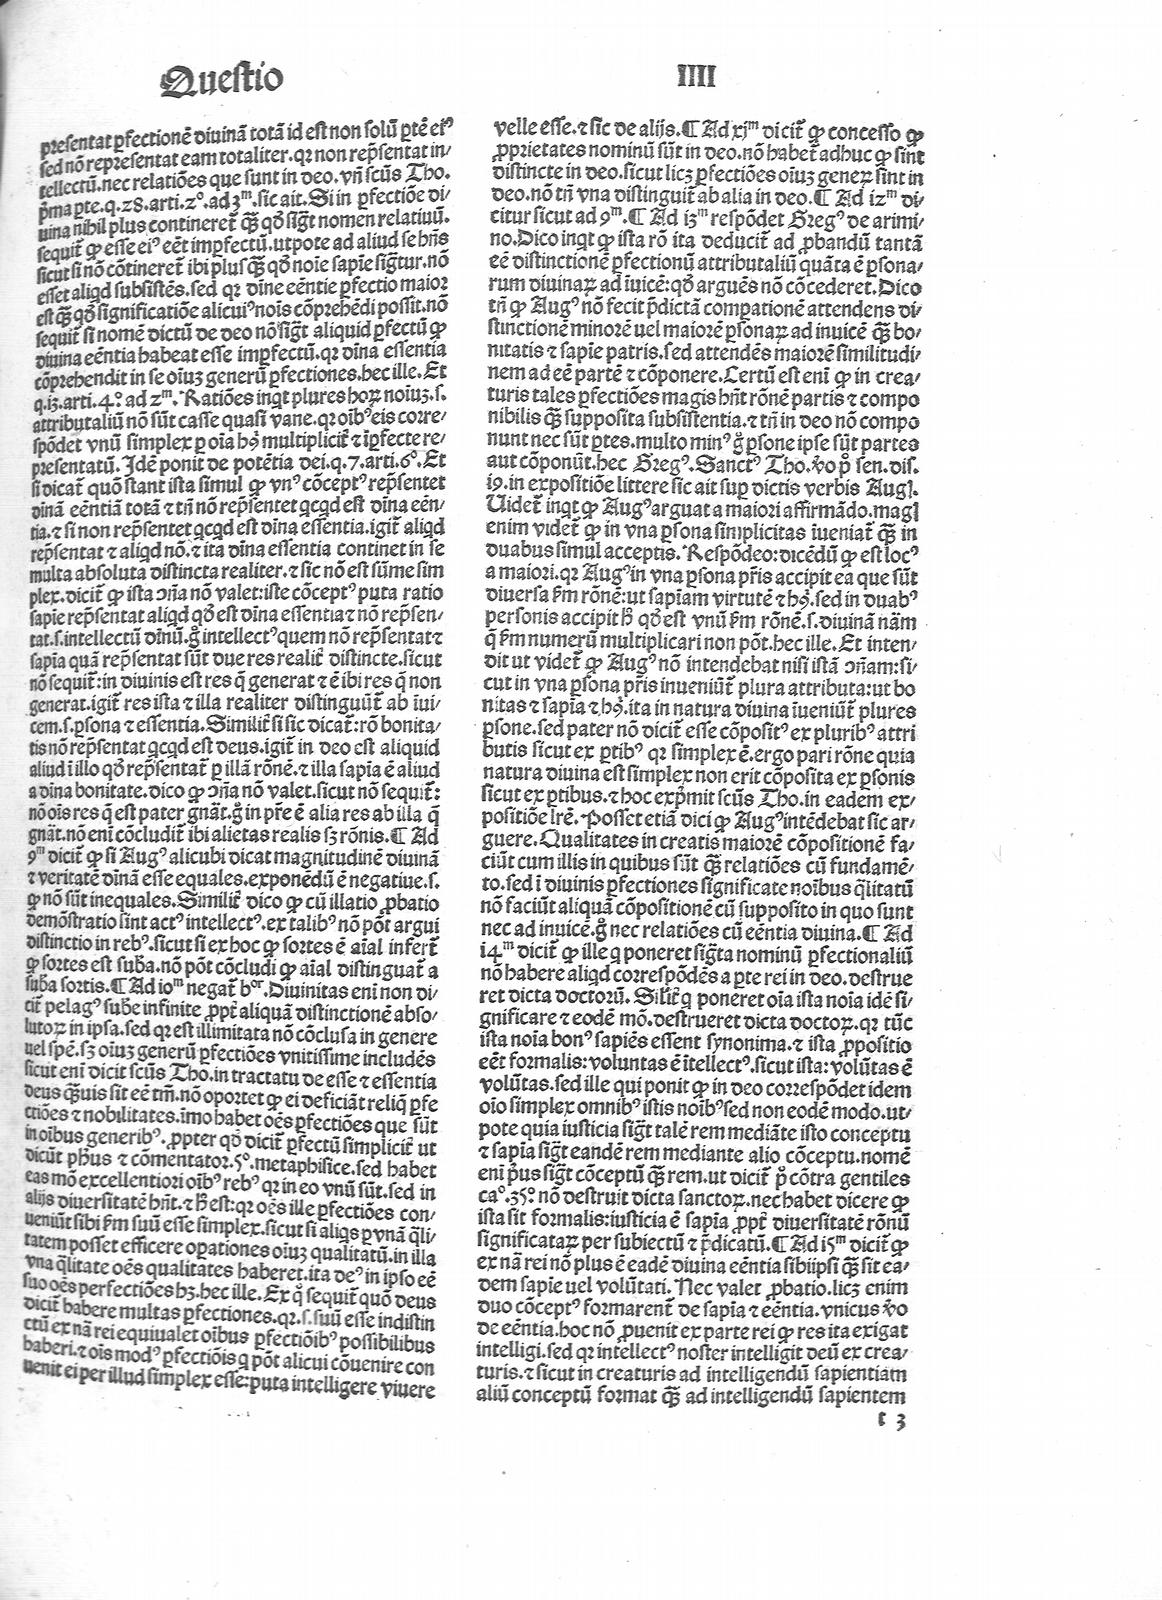 Questio
IIII
presentat ꝑfectionē diuinā totā id est non solū ꝑtē eiꝰ
sed nō representat eam totaliter. qꝛ non rep̄sentat in/
tellectū. nec relatiōes que sunt in deo. vñ scūs Tho.
p̄ma ꝑte. q. 28. arti. 2º. ad 3ᵐ. sic ait. Si in ꝑfectiōe di/
uina nihil plus contineret̄ qꝫ̄ qď sigt̄ nomen relatiuū.
sequit̄ ꝙ esse eiꝰ eēt imꝑfectū. utpote ad aliud se hn̄s
sicut si nō cōtineret̄ ibi plus qꝫ̄ qď noīe sapīe sigt̄ur. nō
esset aliqd subsistēs. sed qꝛ dīne eēntie ꝑfectio maior
est qꝫ̄ qď significatiōe alicuiꝰ noīs cōprehēdi possit. nō
sequit̄ si nomē dictū de deo nō sigt̄ aliquid ꝑfectū ꝙ
diuina eēntia habeat esse imꝑfectū. qꝛ dīna essentia
cōprehendit in se oīuꝫ generū ꝑfectiones. hec ille. Et
q. 13. arti. 4º. ad 2ᵐ. Ratiōes inqt plures hoꝝ noīuꝫ. s.
attributaliū nō sūt casse quasi vane. qꝛ oībꝰ eis corre/
spōdet vnū simplex ꝑ oīa hꝰ multiplicit̄ ⁊ īꝑfecte re/
presentatū. Idē ponit de potētia dei. q. 7. arti. 6º. Et
si dicat̄ quō stant ista simul ꝙ vnꝰ cōceptꝰ rep̄sentet
dīnā eēntiā totā ⁊ tn̄ nō rep̄sentet qcqd est dīna eēn/
tia. ⁊ si non rep̄sentet qcqd est dīna essentia. igit̄ aliqd
rep̄sentat ⁊ aliqd nō. ⁊ ita dīna essentia continet in se
multa absoluta distincta realiter. ⁊ sic nō est sūme sim
plex. dicit̄ ꝙ ista ↄñā nō valet: iste cōceptꝰ puta ratio
sapīe rep̄sentat aliqd qď est dīna essentia ⁊ nō rep̄sen/
tat. s. intellectū dīnū. g̊ intellectꝰ quem nō rep̄sentat ⁊
sapīa quā rep̄sentat sūt due res realit̄ distincte. sicut
nō sequit̄: in diuinis est res q̄ generat ⁊ ē ibi res q̄ non
generat. igit̄ res ista ⁊ illa realiter distinguūt̄ ab īui/
cem. s. ꝑsona ⁊ essentia. Similit̄ si sic dicat̄: rō bonita/
tis nō rep̄sentat qcqd est deus. igit̄ in deo est aliquid
aliud ī illo qď rep̄sentat̄ ꝑ illā rōnē. ⁊ illa sapīa ē aliud
a dīna bonitate. dico ꝙ ↄñā nō valet. sicut nō sequit̄:
nō oīs res q̄ est pater gnāt. g̊ in pr̄e ē alia res ab illa q̄
gnāt. nō enī cōcludit̄ ibi alietas realis sꝫ rōnis. ¶ Ad
9ᵐ dicit̄ ꝙ si Augꝰ alicubi dicat magnitudinē diuinā
⁊ veritatē dīnā esse equales. exponēdū ē negatiue. s.
ꝙ nō sūt inequales. Similit̄ dico ꝙ cū illatio ꝓbatio
demōstratio sint actꝰ intellectꝰ. ex talibꝰ nō pōt argui
distinctio in rebꝰ. sicut si ex hoc ꝙ sortes ē aīal infert̄
ꝙ sortes est suba. nō pōt cōcludi ꝙ aīal distinguat̄ a
suba sortis. ¶ Ad 10ᵐ negat̄ bᵒʳ. Diuinitas enī non di/
cit̄ pelagꝰ sube infinite ꝓpt̄ aliquā distinctionē abso/
lutoꝝ in ipsa. sed qꝛ est illimitata nō cōclusa in genere
uel spē. sꝫ oīuꝫ generū ꝑfectiōes vnitissime includēs
sicut enī dicit scūs Tho. in tractatu de esse ⁊ essentia
deus qꝫ̄uis sit eē tm̄. nō oportet ꝙ ei deficiāt reliq̄ ꝑfe
ctiōes ⁊ nobilitates. īmo habet oēs ꝑfectiōes que sūt
in oībus generibꝰ. ꝓpter qď dicit̄ ꝑfectū simplicit̄ ut
dicūt ph̄us ⁊ cōmentator. 5º. metaphisice. sed habet
eas mō excellentiori oībꝰ rebꝰ qꝛ in eo vnū sūt. sed in
alijs diuersitatē hn̄t. ⁊ h̄ est: qꝛ oēs ille ꝑfectiōes con/
ueniūt sibi ẜm suū esse simplex. sicut si aliqs ꝑ vnā q̄li/
tatem posset efficere oꝑationes oīuꝫ qualitatū. in illa
vna q̄litate oēs qualitates haberet. ita deꝰ in ipso eē
suo oēs perfectiōes hꝫ. hec ille. Ex q̊ sequit̄ quō deus
dicit̄ habere multas ꝑfectiones. qꝛ. s. suū esse indistin
ctū ex nā rei equiualet oībus ꝑfectiōibꝰ possibilibus
haberi. ⁊ oīs modꝰ ꝑfectiōis q pōt alicui cōuenire con
uenit ei per illud simplex esse: puta intelligere viuere
velle esse. ⁊ sic de alijs. ¶ Ad xjᵐ dicit̄ ꝙ concesso ꝙ
ꝓprietates nominū sūt in deo. nō habet̄ adhuc ꝙ sint
distincte in deo. sicut licꝫ ꝑfectiōes oīuꝫ geneꝝ sint in
deo. nō tn̄ vna distinguit̄ ab alia in deo. ¶ Ad 12ᵐ di/
citur sicut ad 9ᵐ. ¶ Ad 13ᵐ respōdet Gregꝰ de arimi/
no. Dico inqt ꝙ ista rō ita deducit̄ ad ꝓbandū tantā
eē distinctionē ꝑfectionū attributaliū quāta ē ꝑsona/
rum diuinaꝝ ad īuicē: qď arguēs nō cōcederet. Dico
tn̄ ꝙ Augꝰ nō fecit p̄dictā comꝑationē attendens di/
stinctionē minorē uel maiorē ꝑsonaꝝ ad inuicē qꝫ̄ bo/
nitatis ⁊ sapīe patris. sed attendēs maiorē similitudi/
nem ad eē partē ⁊ cōponere. Certū est enī ꝙ in crea/
turis tales ꝑfectiōes magis hn̄t rōnē partis ⁊ compo
nibilis qꝫ̄ supposita subsistentia. ⁊ tn̄ in deo nō compo
nunt nec sūt ꝑtes. multo minꝰ g̊ ꝑsone ipse sūt partes
aut cōponūt. hec Gregꝰ. Sanctꝰ Tho. v̊o p̊ sen. dis.
19. in expositiōe littere sic ait suꝑ dictis verbis Augꝭ.
Uidet̄ inqt ꝙ Augꝰ arguat a maiori affirmādo. magꝭ
enim videt̄ ꝙ in vna ꝑsona simplicitas īueniat̄ qꝫ̄ in
duabus simul acceptis. Respōdeo: dicēdū ꝙ est locꝰ
a maiori. qꝛ Augꝰ in vna ꝑsona pr̄is accipit ea que sūt
diuersa ẜm rōnē: ut sapīam virtutē ⁊ hꝰ. sed in duabꝰ
personis accipit h̄ qď est vnū ẜm rōnē. s. diuinā nām
q̄ ẜm numerū multiplicari non pōt. hec ille. Et inten/
dit ut videt̄ ꝙ Augꝰ nō intendebat nisi istā ↄñam: si/
cut in vna ꝑsona pr̄is inueniūt̄ plura attributa: ut bo
nitas ⁊ sapīa ⁊ hꝰ. ita in natura diuina īueniūt̄ plures
ꝑsone. sed pater nō dicit̄ esse cōpositꝰ ex pluribꝰ attri
butis sicut ex ꝑtibꝰ qꝛ simplex ē. ergo pari rōne quia
natura diuina est simplex non erit cōposita ex ꝑsonis
sicut ex ꝑtibus. ⁊ hoc exp̄mit scūs Tho. in eadem ex/
positiōe lr̄e. Posset etiā dici ꝙ Augꝰ intēdebat sic ar/
guere. Qualitates in creatis maiorē cōpositionē fa/
ciūt cum illis in quibus sūt qꝫ̄ relatiōes cū fundamē/
to. sed ī diuinis ꝑfectiones significate noībus q̄litatū
nō faciūt aliquā cōpositionē cū supposito in quo sunt
nec ad inuicē. g̊ nec relatiōes cū eēntia diuina. ¶ Ad
14ᵐ dicit̄ ꝙ ille q poneret sigt̄a nominū ꝑfectionaliū
nō habere aliqd correspōdēs a ꝑte rei in deo. destrue
ret dicta doctorū. Silit̄ q poneret oīa ista noīa idē si/
gnificare ⁊ eodē mō. destrueret dicta doctoꝝ. qꝛ tūc
ista noīa bonꝰ sapiēs essent synonima. ⁊ ista ꝓpositio
eēt formalis: voluntas ē ītellectꝰ. sicut ista: volūtas ē
volūtas. sed ille qui ponit ꝙ in deo correspōdet idem
oīo simplex omnibꝰ istis noībꝰ sed non eodē modo. ut/
pote quia iusticia sigt̄ talē rem mediāte isto conceptu
⁊ sapīa sigt̄ eandē rem mediante alio cōceptu. nomē
enī p̄us sigt̄ cōceptū qꝫ̄ rem. ut dicit̄ p̊ cōtra gentiles
caº. 35º. nō destruit dicta sanctoꝝ. nec habet dicere ꝙ
ista sit formalis: iusticia ē sapīa ꝓpt̄ diuersitatē rōnū
significataꝝ per subiectū ⁊ p̄dicatū. ¶ Ad 15ᵐ dicit̄ ꝙ
ex nā rei nō plus ē eadē diuina eēntia sibiipsi qꝫ̄ sit ea/
dem sapīe uel volūtati. Nec valet ꝓbatio. licꝫ enim
duo cōceptꝰ formarent̄ de sapīa ⁊ eēntia. vnicus v̊o
de eēntia. hoc nō ꝓuenit ex parte rei ꝙ res ita exigat
intelligi. sed qꝛ intellectꝰ noster intelligit deū ex crea/
turis. ⁊ sicut in creaturis ad intelligendū sapientiam
aliū conceptū format qꝫ̄ ad intelligendū sapientem
t 3